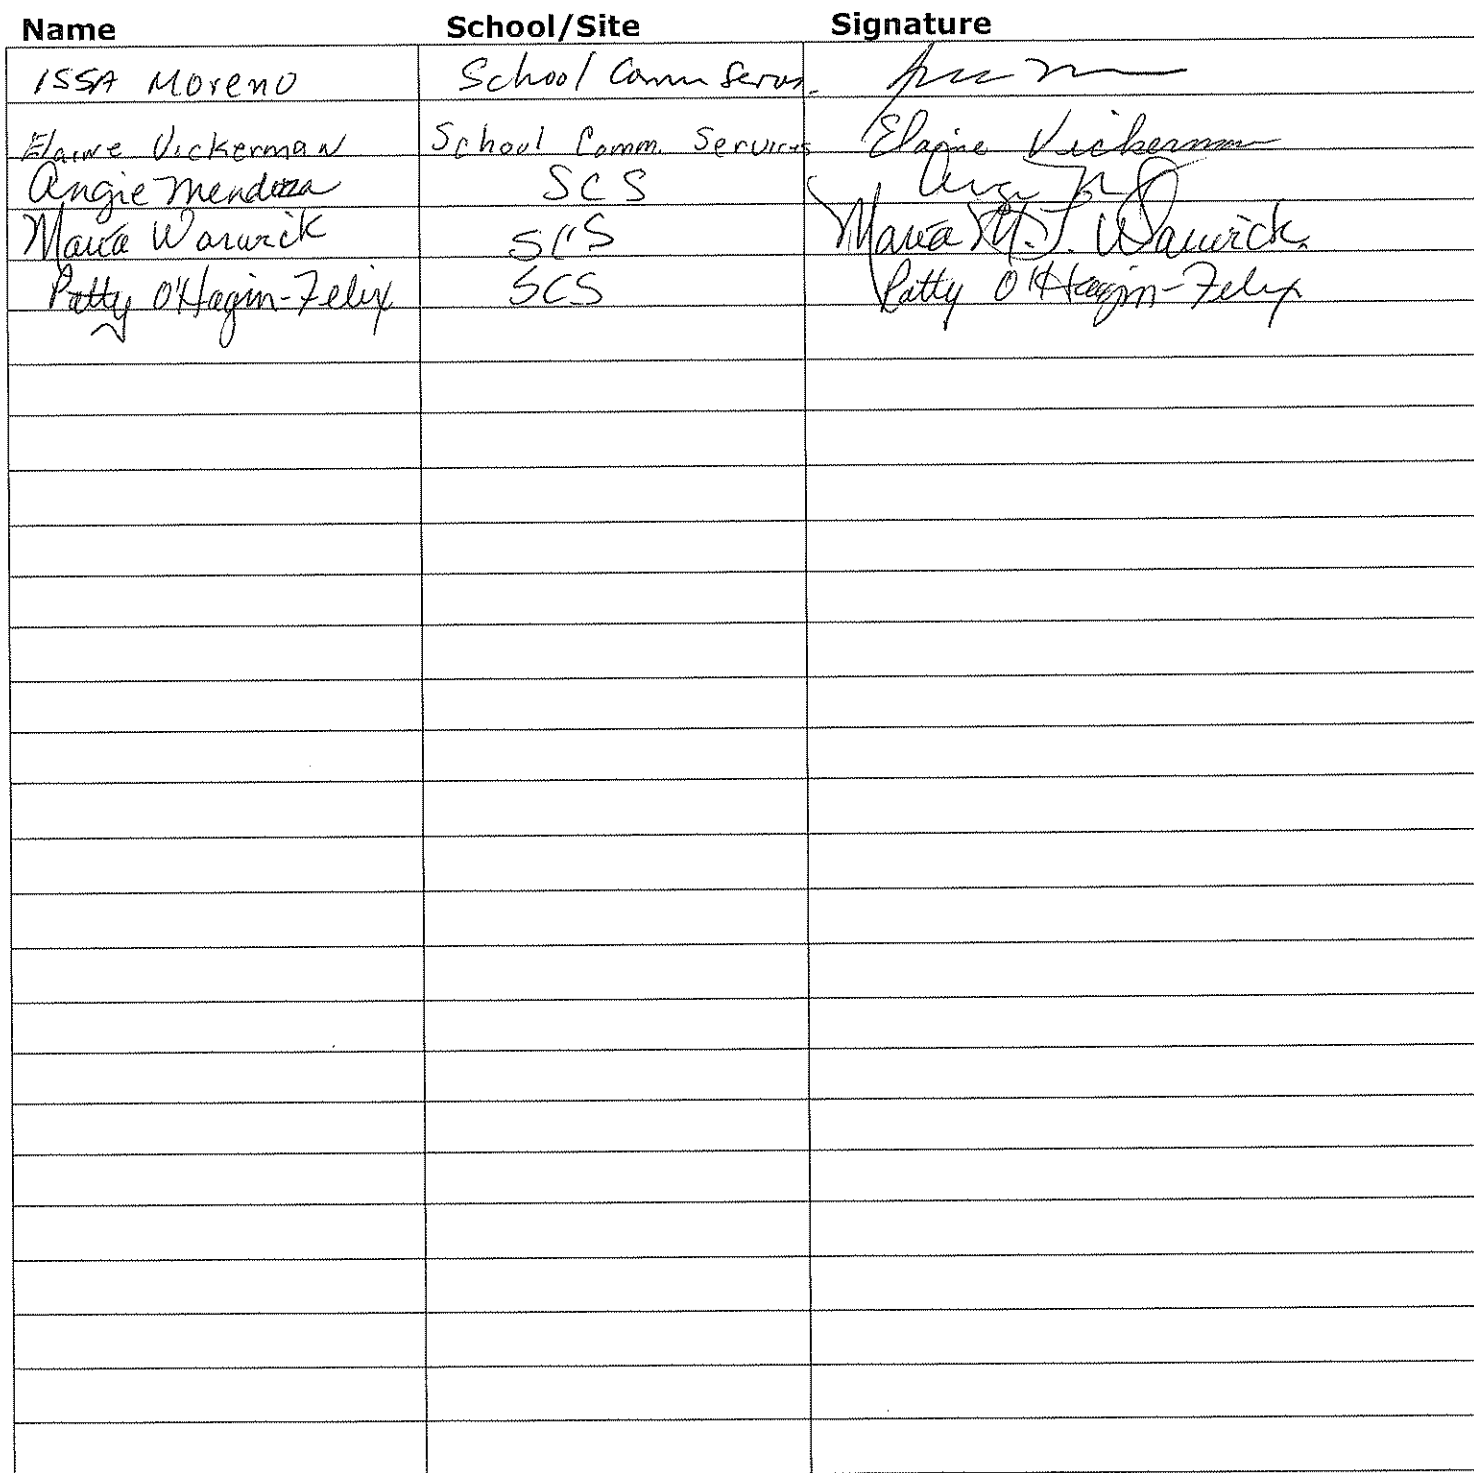 Name School/Site Signature
ISSA Moreno School Comm Servs.
Elaine Vickerman School Comm. Services Elaine Vickerman
Angie Mendoza SCS
Maria Warwick SCS Maria M.J. Warwick
Patty O'Hagin-Felix SCS Patty O'Hagin-Felix